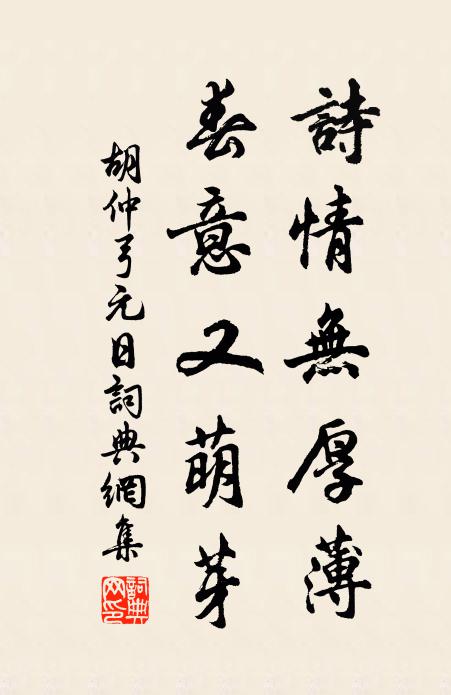 詩情無厚薄
春意又萌芽
胡仲弓元日詞典網集
詞典网印